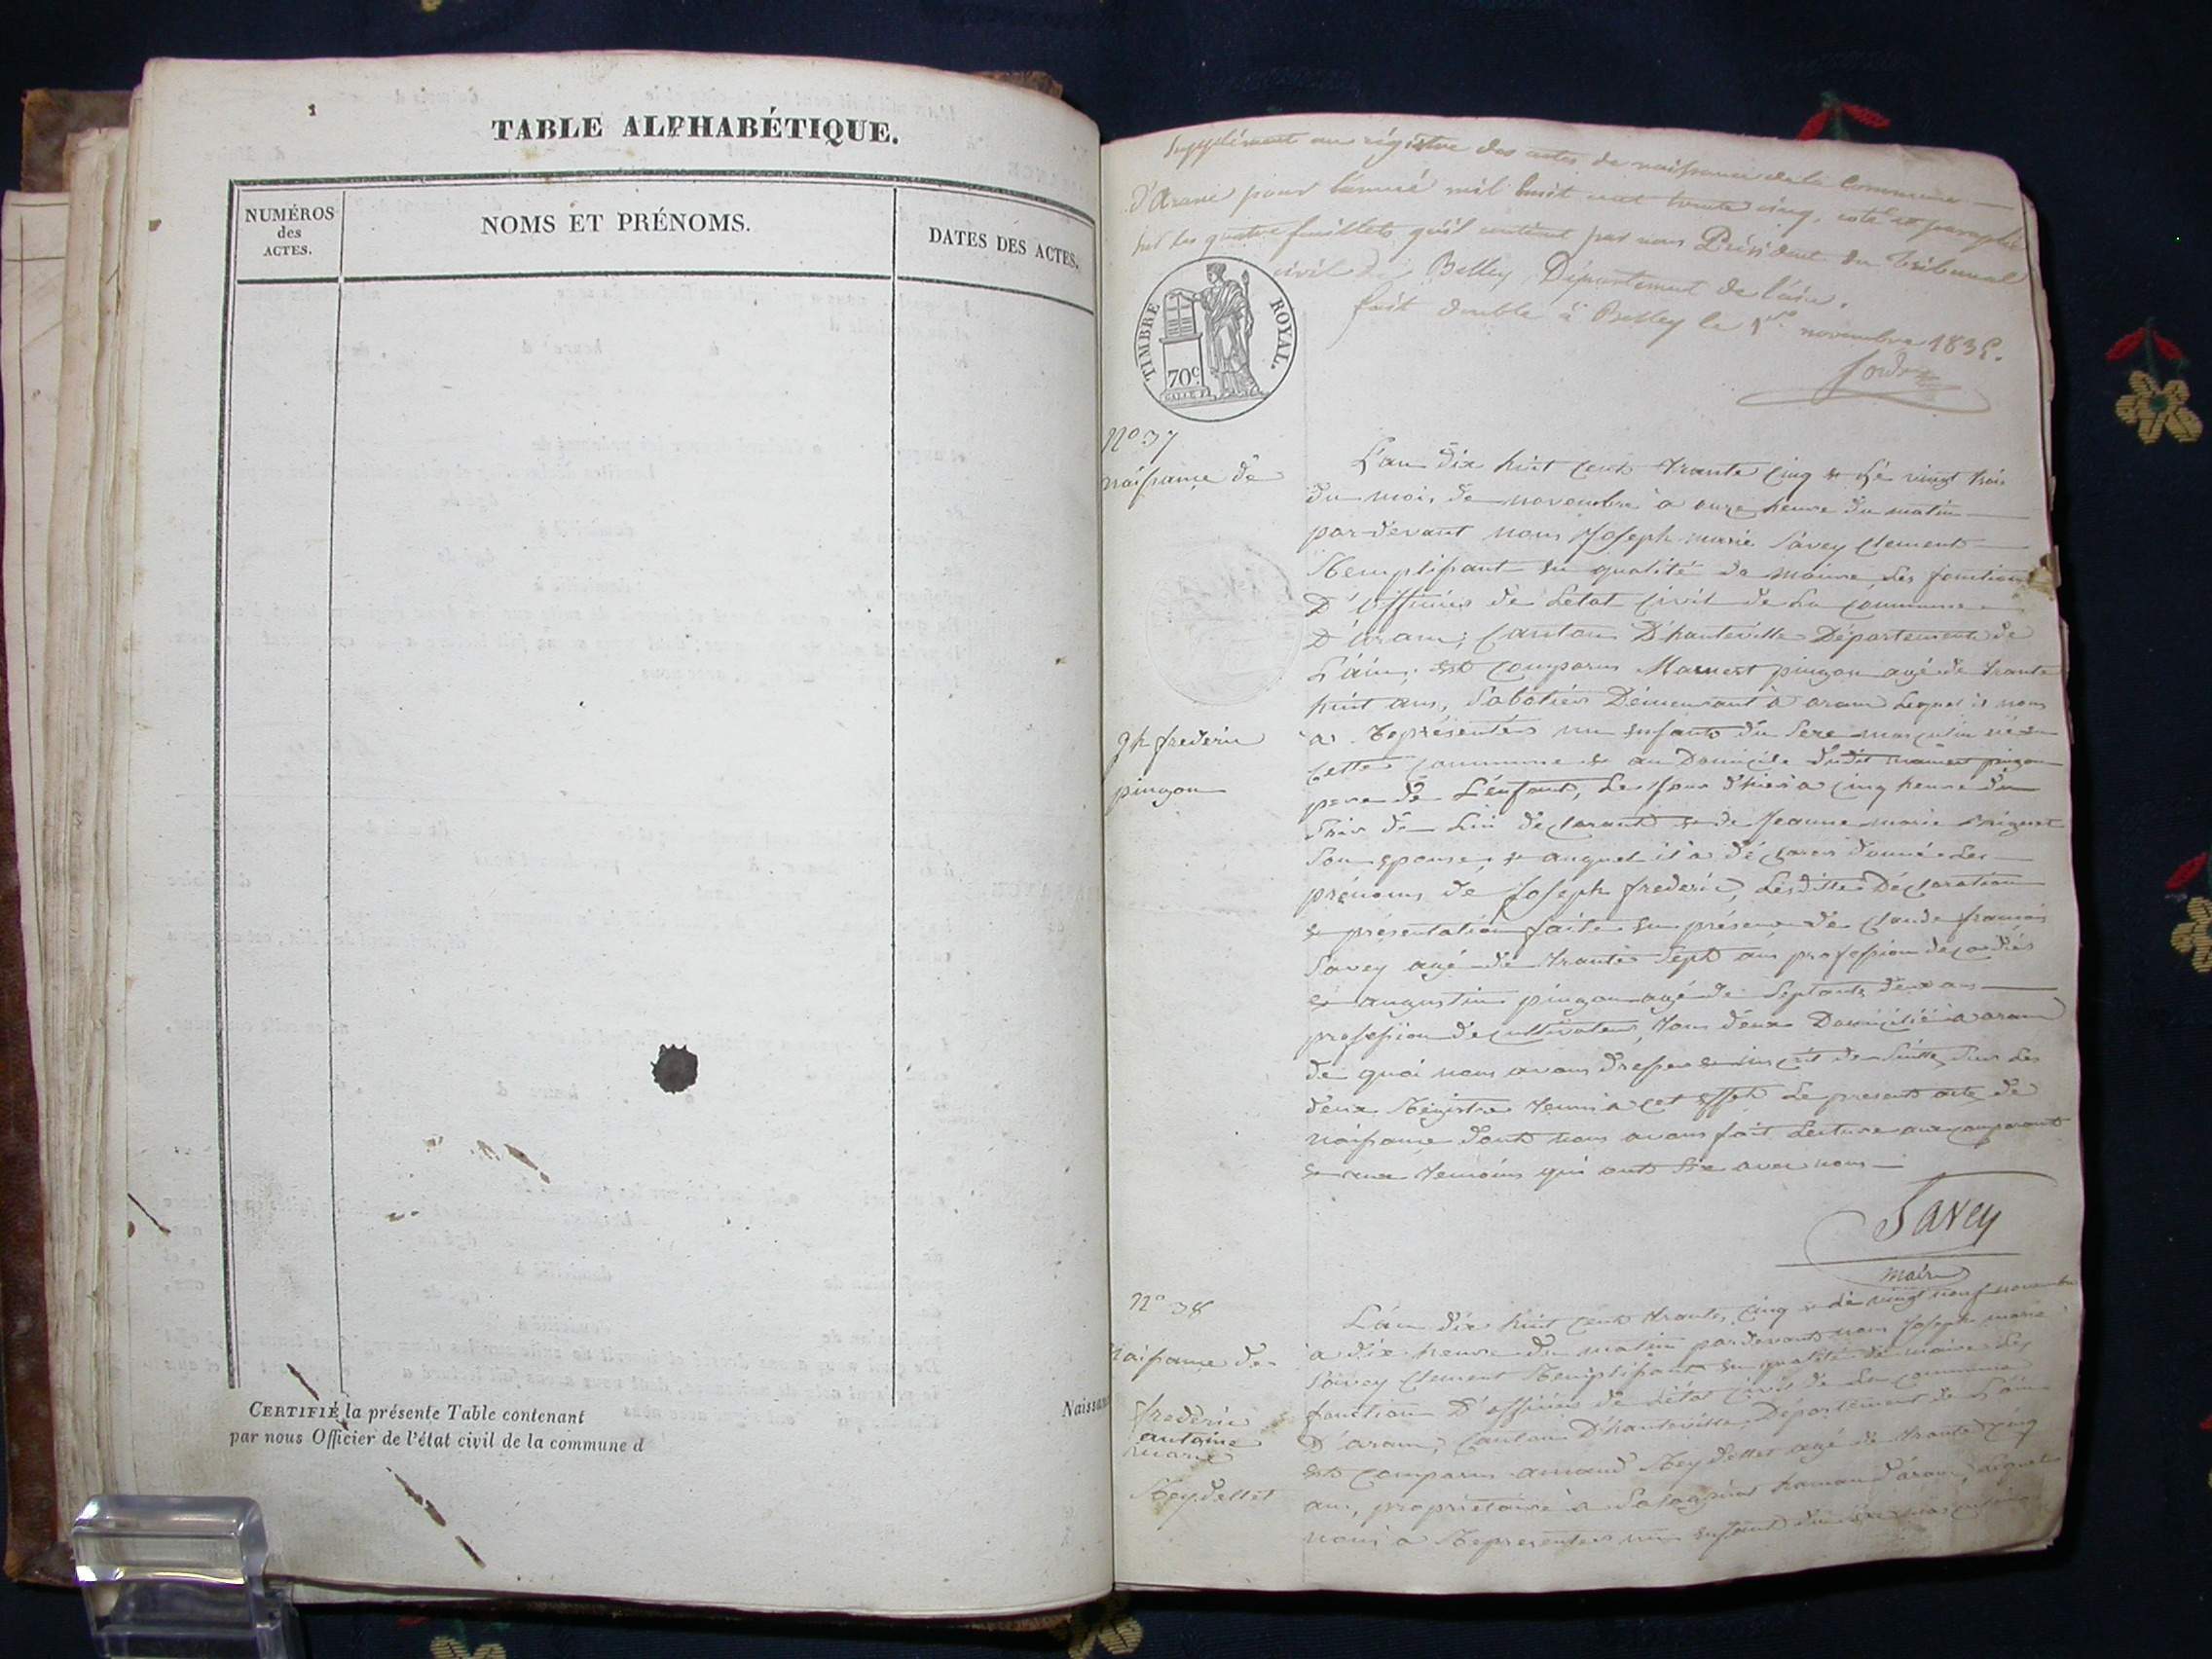 TABLE ALPHABÉTIQUE.
NUMÉROS
des
ACTES.
NOMS ET PRÉNOMS.
DATES DES ACTES.
CERTIFIÉ la présente Table contenant
Naissan
par nous Officier de l'état civil de la commune d
Supplément au régistre des actes de naissance de la Commune
d'Arane pour l'année mil huit cent trente cinq, coté et paraphé
sur les quatre feuillets qu'il contient par nous Président du Tribunal
civil de Belley Département de l'ain.
fait double à Belley le 1er novembre 1835.
TIMBRE ROYAL.
70c.
No 37
naissance de
Jh frederic
pingon
L'an dix huit cent trante cinq & Lé vingt trois
du mois de novembre a onze heure du matin
par-devant nous Joseph marie Savey Clement
Remplissant en qualité de maire des fonction
D'officier de Letat Civil de La Commune
D'aranc, Canton D'hauteville Département de
L'ain; est Comparu Mamert pingon agé de trante
huit ans, Sabotier Demeurant à aranc Lequel il nous
a Représenter un enfant du Sexe masculin né en
Cette Commune & au Domicile dudit mamert pingon
pere de L'enfant, Le jour d'hier a Cinq heure du
Soir de Lui declarant & de Jeanne marie
Son epouse, & auquel il a déclarer donner Les
prénoms de Joseph frederic, Lesdittes Déclaration
& présentation faite en présence de Claude françois
Savey agé de trante Sept ans profession de
& augustin pingon agé de Septante deux ans
profession de Cultivateur, tous deux Domicilié a aranc
de quoi nous avons dresser & inscrit de Suitte Sur Les
deux Régistre tenu a cet effet Le present acte de
naissance dont nous avons fait Lecture aux comparant
& aux temoins qui ont avec nous
Savey
maire
No 38
naissance de
frederic
antoine
marie
Reydellet
L'an dix huit Cent trante Cinq & Le vingt neuf novembre
a dix heure du matin pardevant nous Joseph marie
Savey Clement Remplissant en qualité de maire Les
fonction D'officier de Létat Civil de La Commune
D'aranc, Canton D'hauteville Département de L'ain
est Comparu armand Reydellet agé de trante Cinq
ans, propriétaire a hameau d'aranc, Lequel
nous a Representer un enfant du Sexe masculin